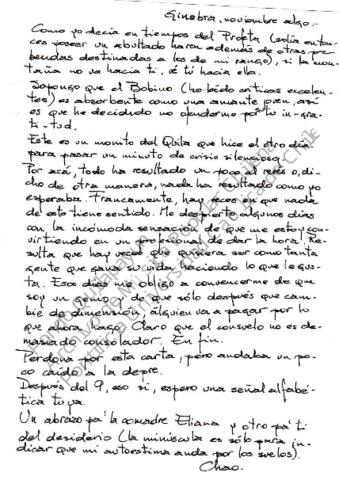 Ginebra, noviembre algo.-
Como yo decía en tiempos del Profeta (solía enton-
ces poseer un abultado harem además de otras pre-
bendas destinadas a los de mi rango), si la mon-
taña no va hacia ti, vé tú hacia ella.
Supongo que el Bobino (he leído críticas excelen-
tes) es absorbente como una amante joven, así
es que he decidido no ofenderme por tu in-gra-
ti-tud.
Este es un monito del Quila que hice el otro día
para pasar un minuto de crisis silenciosa.
Por acá, todo ha resultado un poco al revés o, di-
cho de otra manera, nada ha resultado como yo
esperaba. Francamente, hay veces en que nada
de esto tiene sentido. Me despierto algunos días
con la incómoda sensación de que me estoy con-
virtiendo en un profesional de dar la hora! Re-
sulta que hay veces que quisiera ser como tanta
gente que gana su vida haciendo lo que le gus-
ta. Esos días me obligo a convencerme de que
soy un genio y de que sólo después que cam-
bie de dimensión, alguien va a pagar por lo
que ahora hago. Claro que el consuelo no es de-
masiado consolador. En fin.
Perdona por esta carta, pero andaba un po-
co caído a la depre.
Después del 9, eso sí, espero una señal alfabé-
tica tuya.
Un abrazo pa' la comadre Eliana y otro pa' ti
del desiderio (la minúscula es sólo para in-
dicar que mi autoestima anda por los suelos).
Chao.